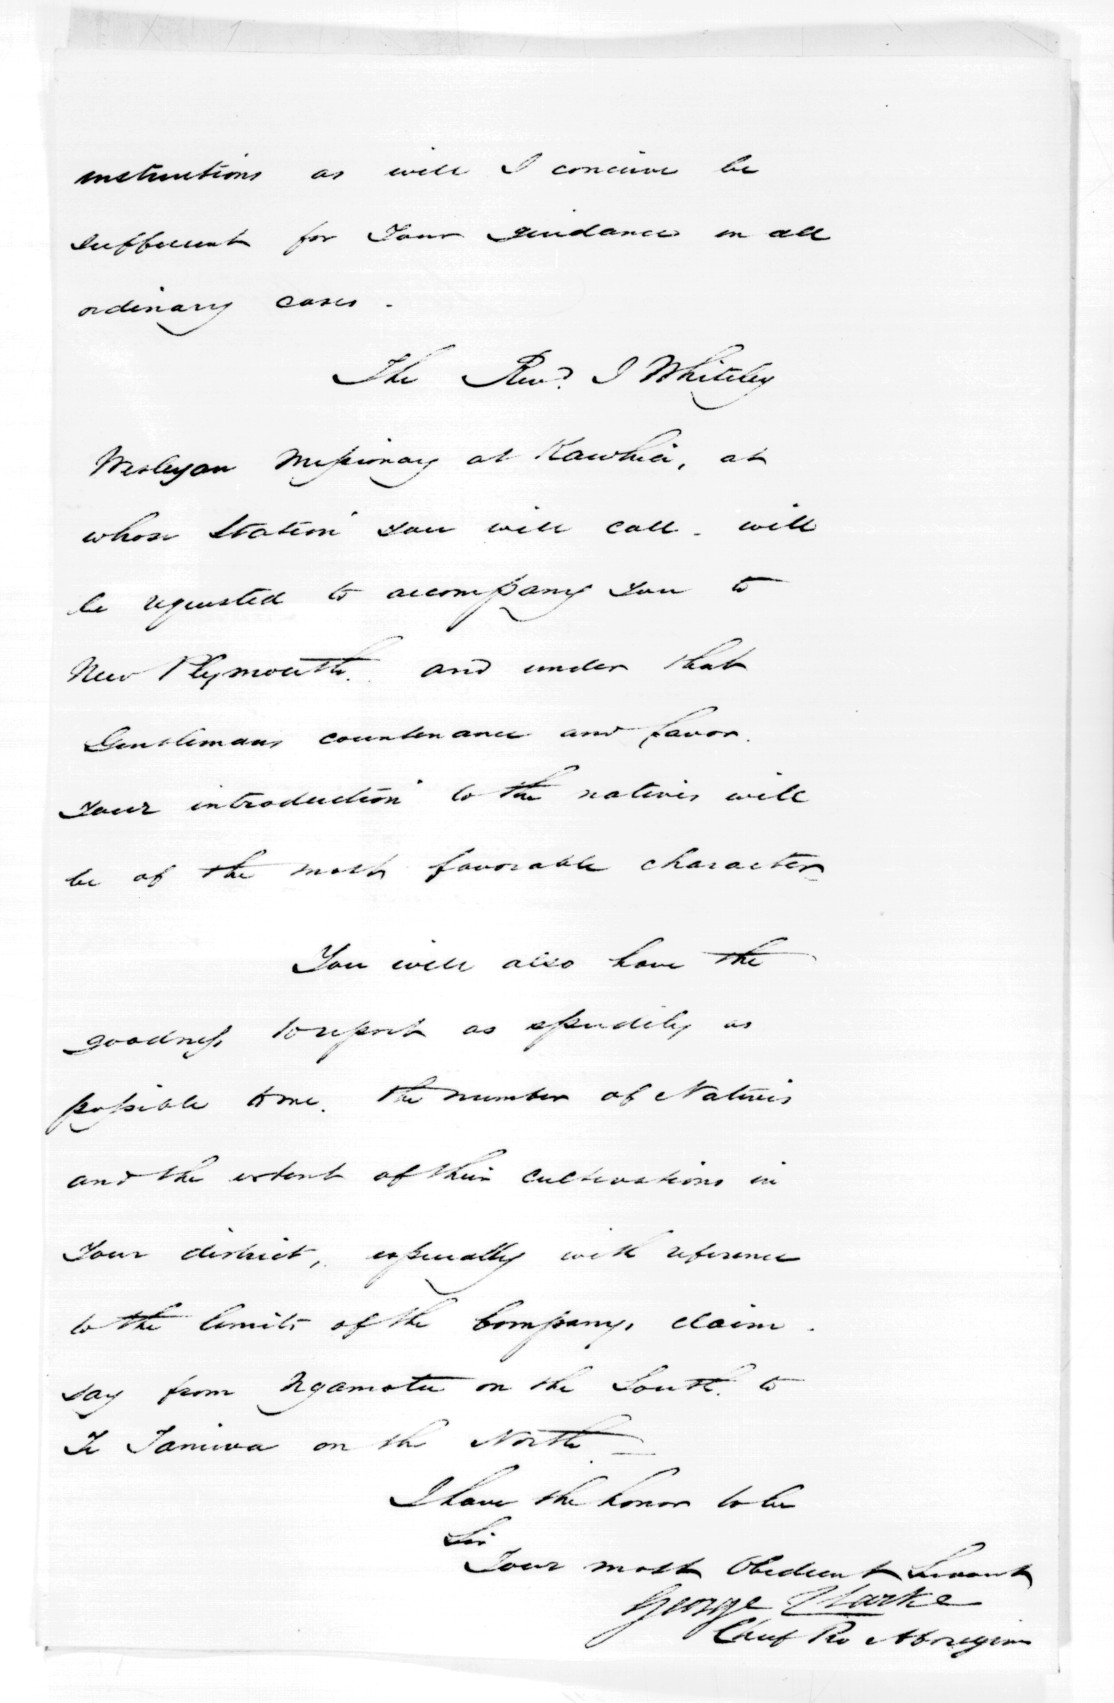 instructions as will I concieve be
sufficient for Your guidance in all
ordinary cases.
The Revd. J Whiteley
Wesleyan Missionary at Kawhia, at
whose Station you will call. will
be requested to accompany you to
New Plymouth. and under that
Gentlemans countenance and favor.
Your introduction to the natives will
be of the most favorable character
You will also have the
goodness to report as speedily as
possible to me. the number of Natives
and the extent of their cultivations in
Your district, especially with reference
to the limits of the Companys claim.
say from Ngamotu on the South. to
Te Taniwa on the North.—
I have the honor to be
Sir
Your most Obedient Servant
George Clarke
Chief Pro Aborigines